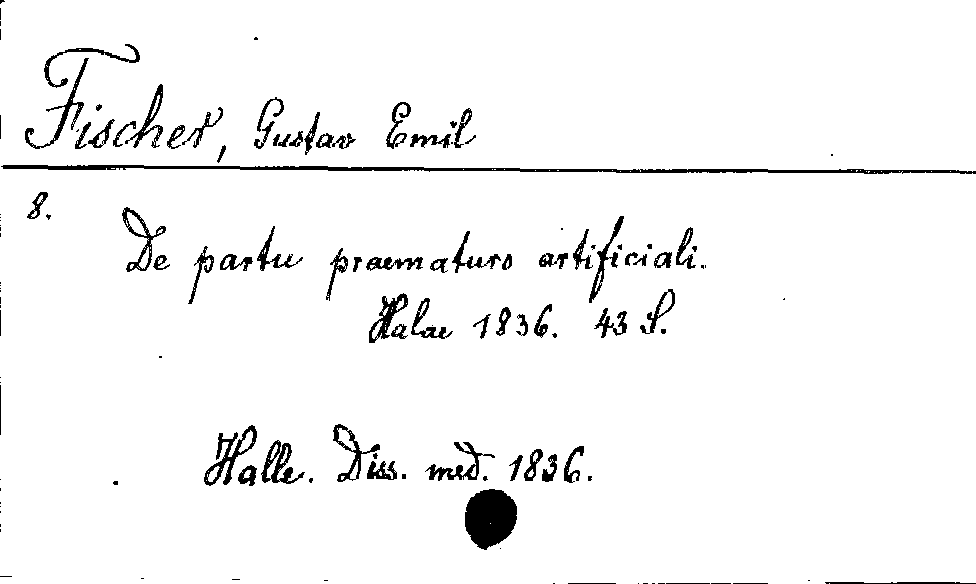 Fischer, Gustav Emil
8.
De partu praematuro artificiali.
Halae 1836. 43 S.
Halle. Diss. med. 1836.